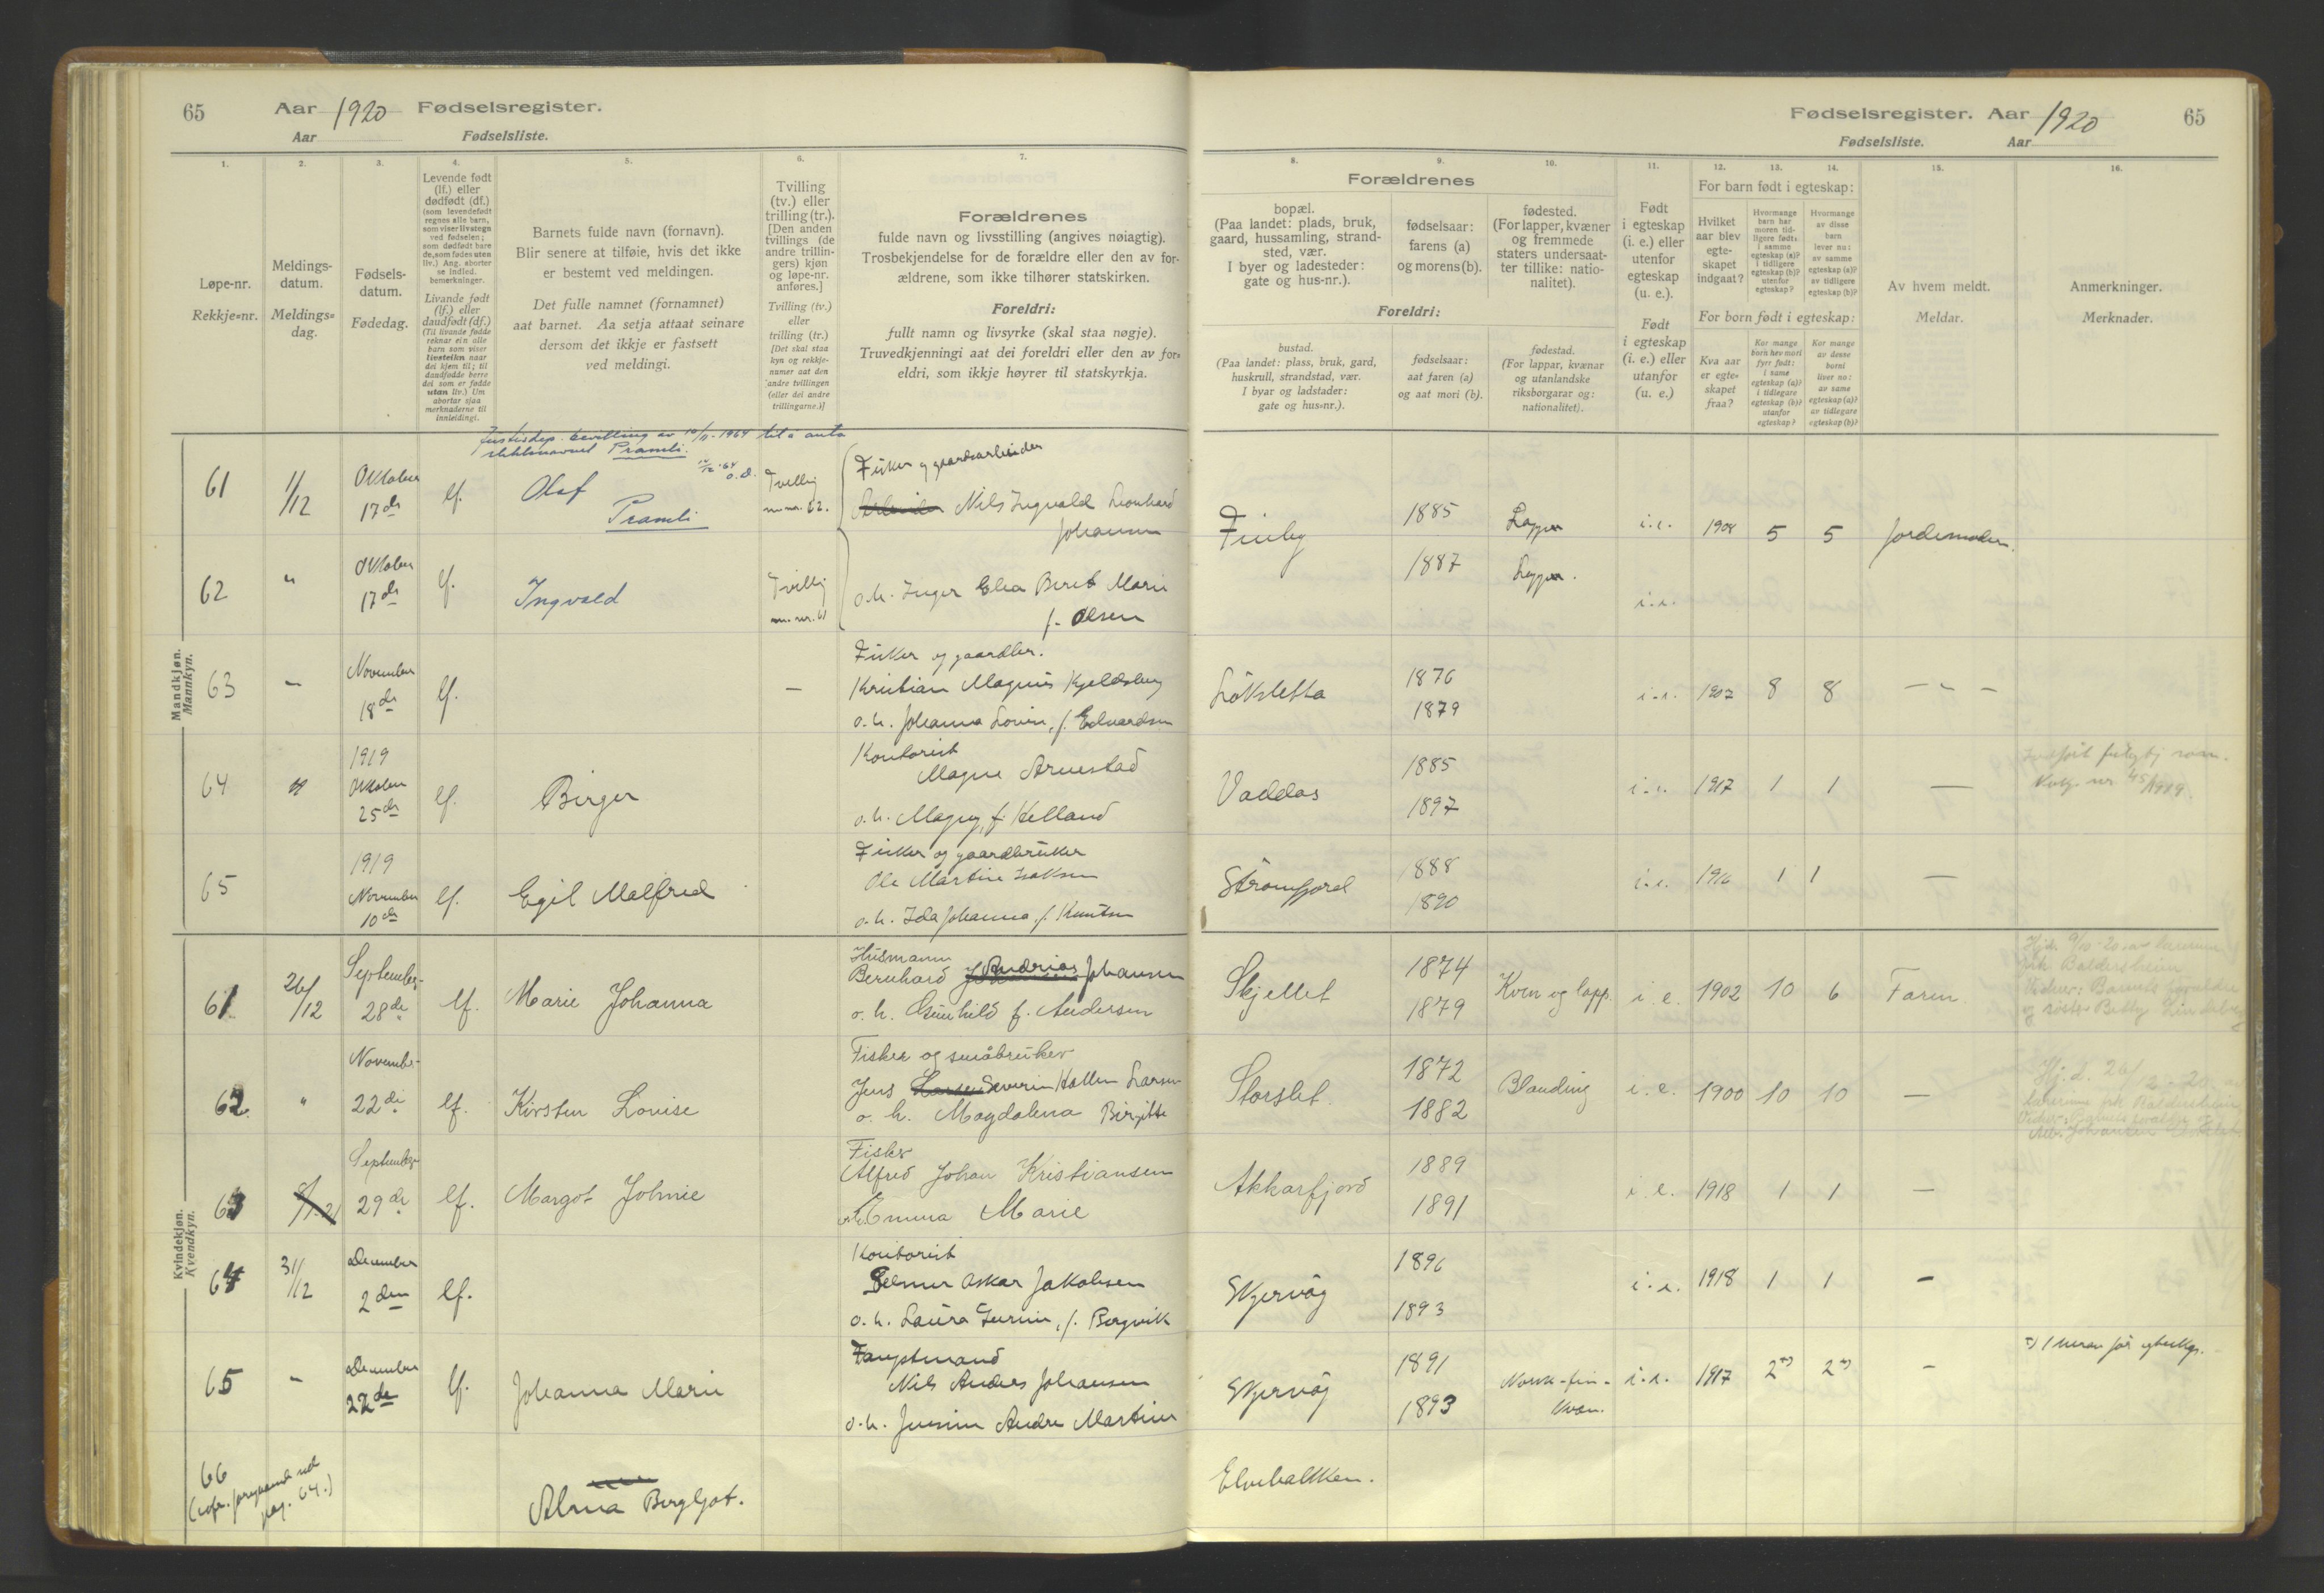 65 Aar 1920 Fødselsregister.
Aar Fødselsliste.
Fødselsregister. Aar 1920 65
Fødselsliste. Aar
1. 2. 3. 4. 5. 6. 7.
Løpe-nr.
Rekkje-nr.
Meldings-
datum.
Meldings-
dag.
Fødsels-
datum.
Fødedag.
Levende født
(lf.) eller
dødfødt (df.)
(som levendefødt
regnes alle barn,
som viser livstegn
ved fødselen;
som dødfødt bare
de, som fødes uten
liv.) Ang. aborter
se indled.
bemerkninger.
Livande født
(lf.) eller
daudfødt (df.)
(Til livande fødde
reknar ein alle
barn som viser
livsteikn naar
dei kjem til; til
daudfødde berre
dei som er fødde
utan liv.) Um
abortar sjaa
merknaderne til
innleidingi.
Barnets fulde navn (fornavn).
Blir senere at tilføie, hvis det ikke
er bestemt ved meldingen.
Det fulle namnet (fornamnet)
aat barnet. Aa setja attaat seinare
dersom det ikkje er fastsett
ved meldingi.
Tvilling
(tv.) eller
trilling (tr.).
[Den anden
tvillings (de
andre trillin-
gers) kjøn
og løpe-nr.
anføres.]
Tvilling (tv.)
eller
trilling (tr.)
[Det skal staa
kyn og rekkje-
numer aat den
andre tvillingen
(eller dei andre
trillingarne.)]
Forældrenes
fulde navn og livsstilling (angives nøiagtig).
Trosbekjendelse for de forældre eller den av for-
ældrene, som ikke tilhører statskirken.
Foreldri:
fullt namn og livsyrke (skal staa nøgje).
Truvedkjenningi aat dei foreldri eller den av for-
eldri, som ikkje høyrer til statskyrkja.
8. 9. 10. 11. 12. 13. 14. 15. 16.
Forældrenes
bopæl.
(Paa landet: plads, bruk,
gaard, hussamling, strand-
sted, vær.
I byer og ladesteder:
gate og hus-nr.).
fødselsaar:
farens (a)
og morens (b).
fødested.
(For lapper, kvæner
og fremmede
staters undersaat-
ter tillike: natio-
nalitet).
Foreldri:
bustad.
(Paa landet: plass, bruk, gard,
huskrull, strandstad, vær.
I byar og ladstader:
gate og hus-nr.).
fødselsaar:
aat faren (a)
og aat mori (b).
fødestad.
(For lappar, kvænar
og utanlandske
riksborgarar og:
nationalitet).
Født
i egteskap
(i. e.) eller
utenfor
egteskap
(u. e.).
Født
i egteskap
(i. e.) eller
utanfor
(u. e.)
For barn født i egteskap:
Hvilket
aar blev
egte-
skapet
indgaat?
Hvormange
barn har
moren tid-
ligere født:
i samme
egteskap (a)?
i tidligere
egteskap (b)?
utenfor
egteskap?
Hvormange
av disse
barn
lever nu:
av samme
egteskap (a)?
av tidligere
egteskap (b)?
For born født i egteskap:
Kva aar
er egte-
skapet
fraa?
Kor mange
born hev mori
fyrr født:
i same
egteskap (a)?
i tidlegare
egteskap (b)?
utanfor
egteskap?
Kor mange
av desse
borni
liver no:
av same
egteskap (a)?
av tidlegare
egteskap (b)?
Av hvem meldt.
Meldar.
Anmerkninger.
Merknader.
Mandkjøn.
Mannkyn.
Justisdep. bevilling av 10/11-1964 til å anta
slektsnavnet Pramli.
61 11/12 Oktober 17de lf. Olaf Pramli Tvilling m. nr. 62.
Fisker og gaardsarbeider
Nils Ingvald Leonhard
Johansen
Finby 1885 Lapper i.e. 1908 5 5 Jordemoderen.
62 " Oktober 17de lf. Ingvald Tvilling m. nr. 61
o.h. Inger Elea Berit Marie
f. Olsen
1887 Lapper. i.e.
63 – November 18de lf. –
Fisker og gaardbr.
Kristian Magnus Kjeldsberg
o.h. Johanna Lovise, f. Edvardsen
Løksletta 1876 1879 i.e. 1907 8 8 – " –
64 " 1919 Oktober 25de lf. Birger
Kontorist
Magne Arnestad
o.h. Magny, f. Helland
Vaddas 1885 1897 i.e. 1917 1 1 –
45/1919.
65 1919 November 10de lf. Egil Malfred
Fisker og gaardbruker
Ole Martin Isaksen
o.h. Ida Johanna, f. Knutsen
Strømfjord 1888 1890 i.e. 1916 1 1 –
Kvindekjøn.
Kvendkyn.
61. 26/12 September 28de lf. Marie Johanna
Husmann
Bernhard Andrias Johansen
o. h. Gunhild f. Andersen
Skjellet 1874 1879 Kven og lapp. i. e. 1902 10 6 Faren.
62. " November 22de lf. Kirsten Lovise
Fisker og småbruker
Jens Severin Hallen Larsen
o. h. Magdalena Birgitte
Storslet. 1872 1882 Blanding i. e. 1900 10 10 –
63 September 29de lf. Margot Johnie
Fisker
Alfred Johan Kristiansen
o.h. Emma Marie
Akkarfjord 1889 1891 i. e. 1918 1 1 –
64 31/12 December 2den lf.
Kontorist
Selmer Oskar Jakobsen
o.h. Laura Jurine, f. Bergvik
Skjervøy 1896 1893 i.e. 1918 1 1 –
65 – December 22de lf. Johanna Marie
Fangstmand
Nils Anders Johansen
o.h. Jensine Andre Martine
Skjervøy 1891 1893 Norsk-fin-kvæn. i.e. 1917 2 2 –
66 pag. 64.)
Alma Bergljot.
Elvebakken.